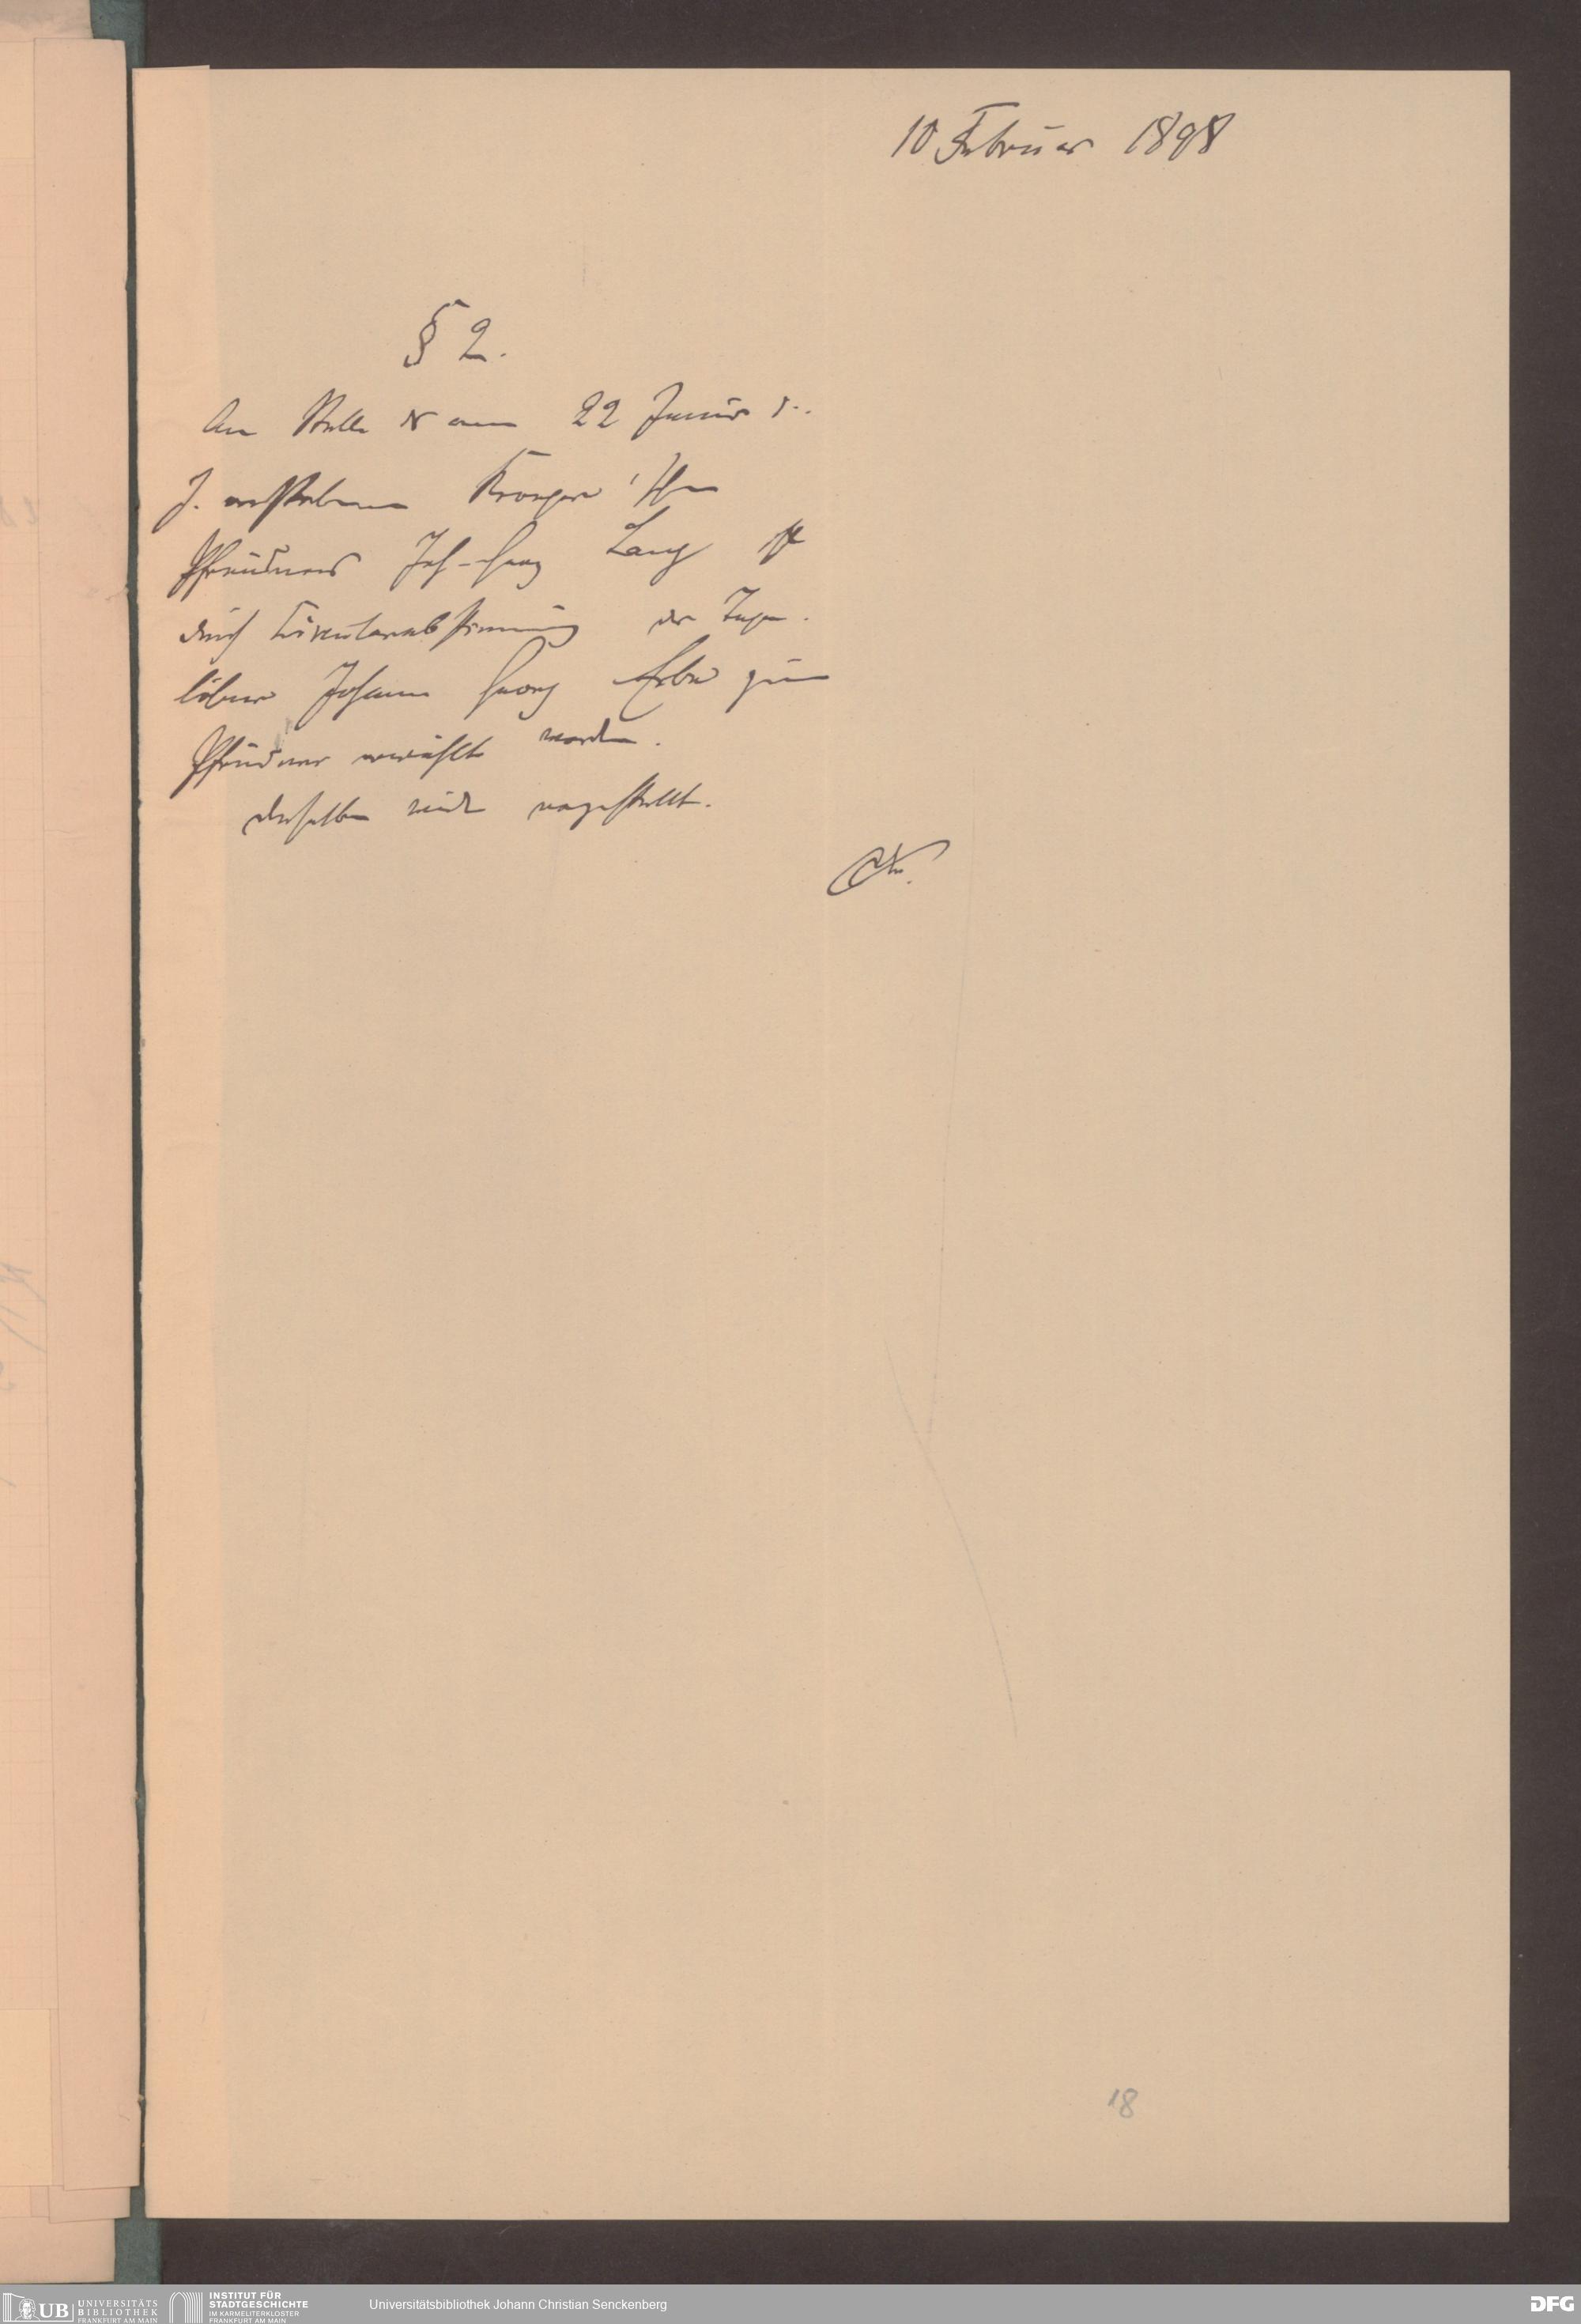 10 Februar 1898
§ 2.
An Stelle des am 22 Januar d.
J. verstorbenen
Pfründners Joh. Georg Lang ist
durch Circularabstimmung der Tage-
löhner Johann Georg Erbe zum
Pfründner erwählt worden.
derselbe wird vorgestellt.
18
UB UNIVERSITÄTS
BIBLIOTHEK
FRANKFURT AM MAIN
INSTITUT FÜR
STADTGESCHICHTE
IM KARMELITERKLOSTER
FRANKFURT AM MAIN
Universitätsbibliothek Johann Christian Senckenberg
DFG